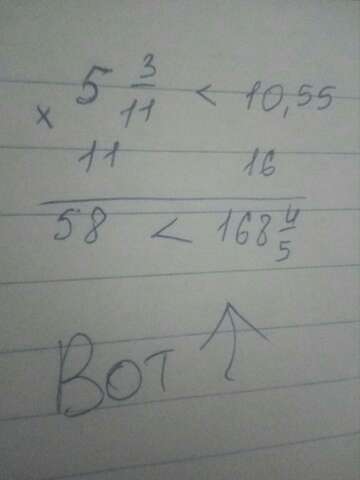 × 5 3/11 < 10,55
11 16
58 < 168 4/5
Вот ↑